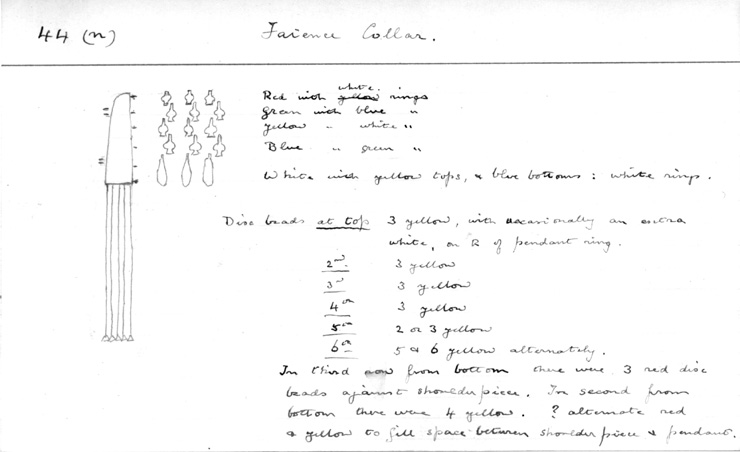 44 (n) Faience Collar.
white.
Red with yellow rings
Green with blue "
Yellow " white "
Blue " green "
White with yellow tops, & blue bottoms : white rings.
Disc beads at top 3 yellow, with occasionally an extra
white, on R of pendant ring.
2nd. 3 yellow
3rd 3 yellow
4th 3 yellow
5th 2 or 3 yellow
6th 5 & 6 yellow alternately.
In third row from bottom there were 3 red disc
beads against shoulder piece. In second from
bottom there were 4 yellow. ? alternate red
& yellow to fill space between shoulder piece & pendant.